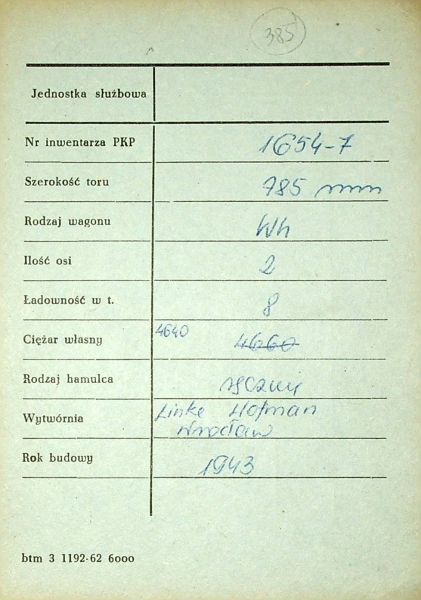 385
Jednostka służbowa
Nr inwentarza PKP 1654-7
Szerokość toru 785 mm
Rodzaj wagonu Wh
Ilość osi 2
Ładowność w t. 8
Ciężar własny 4640 4660
Rodzaj hamulca ręczny
Wytwórnia Linke Hofman
Wrocław
Rok budowy 1943
btm 3 1192-62 6000